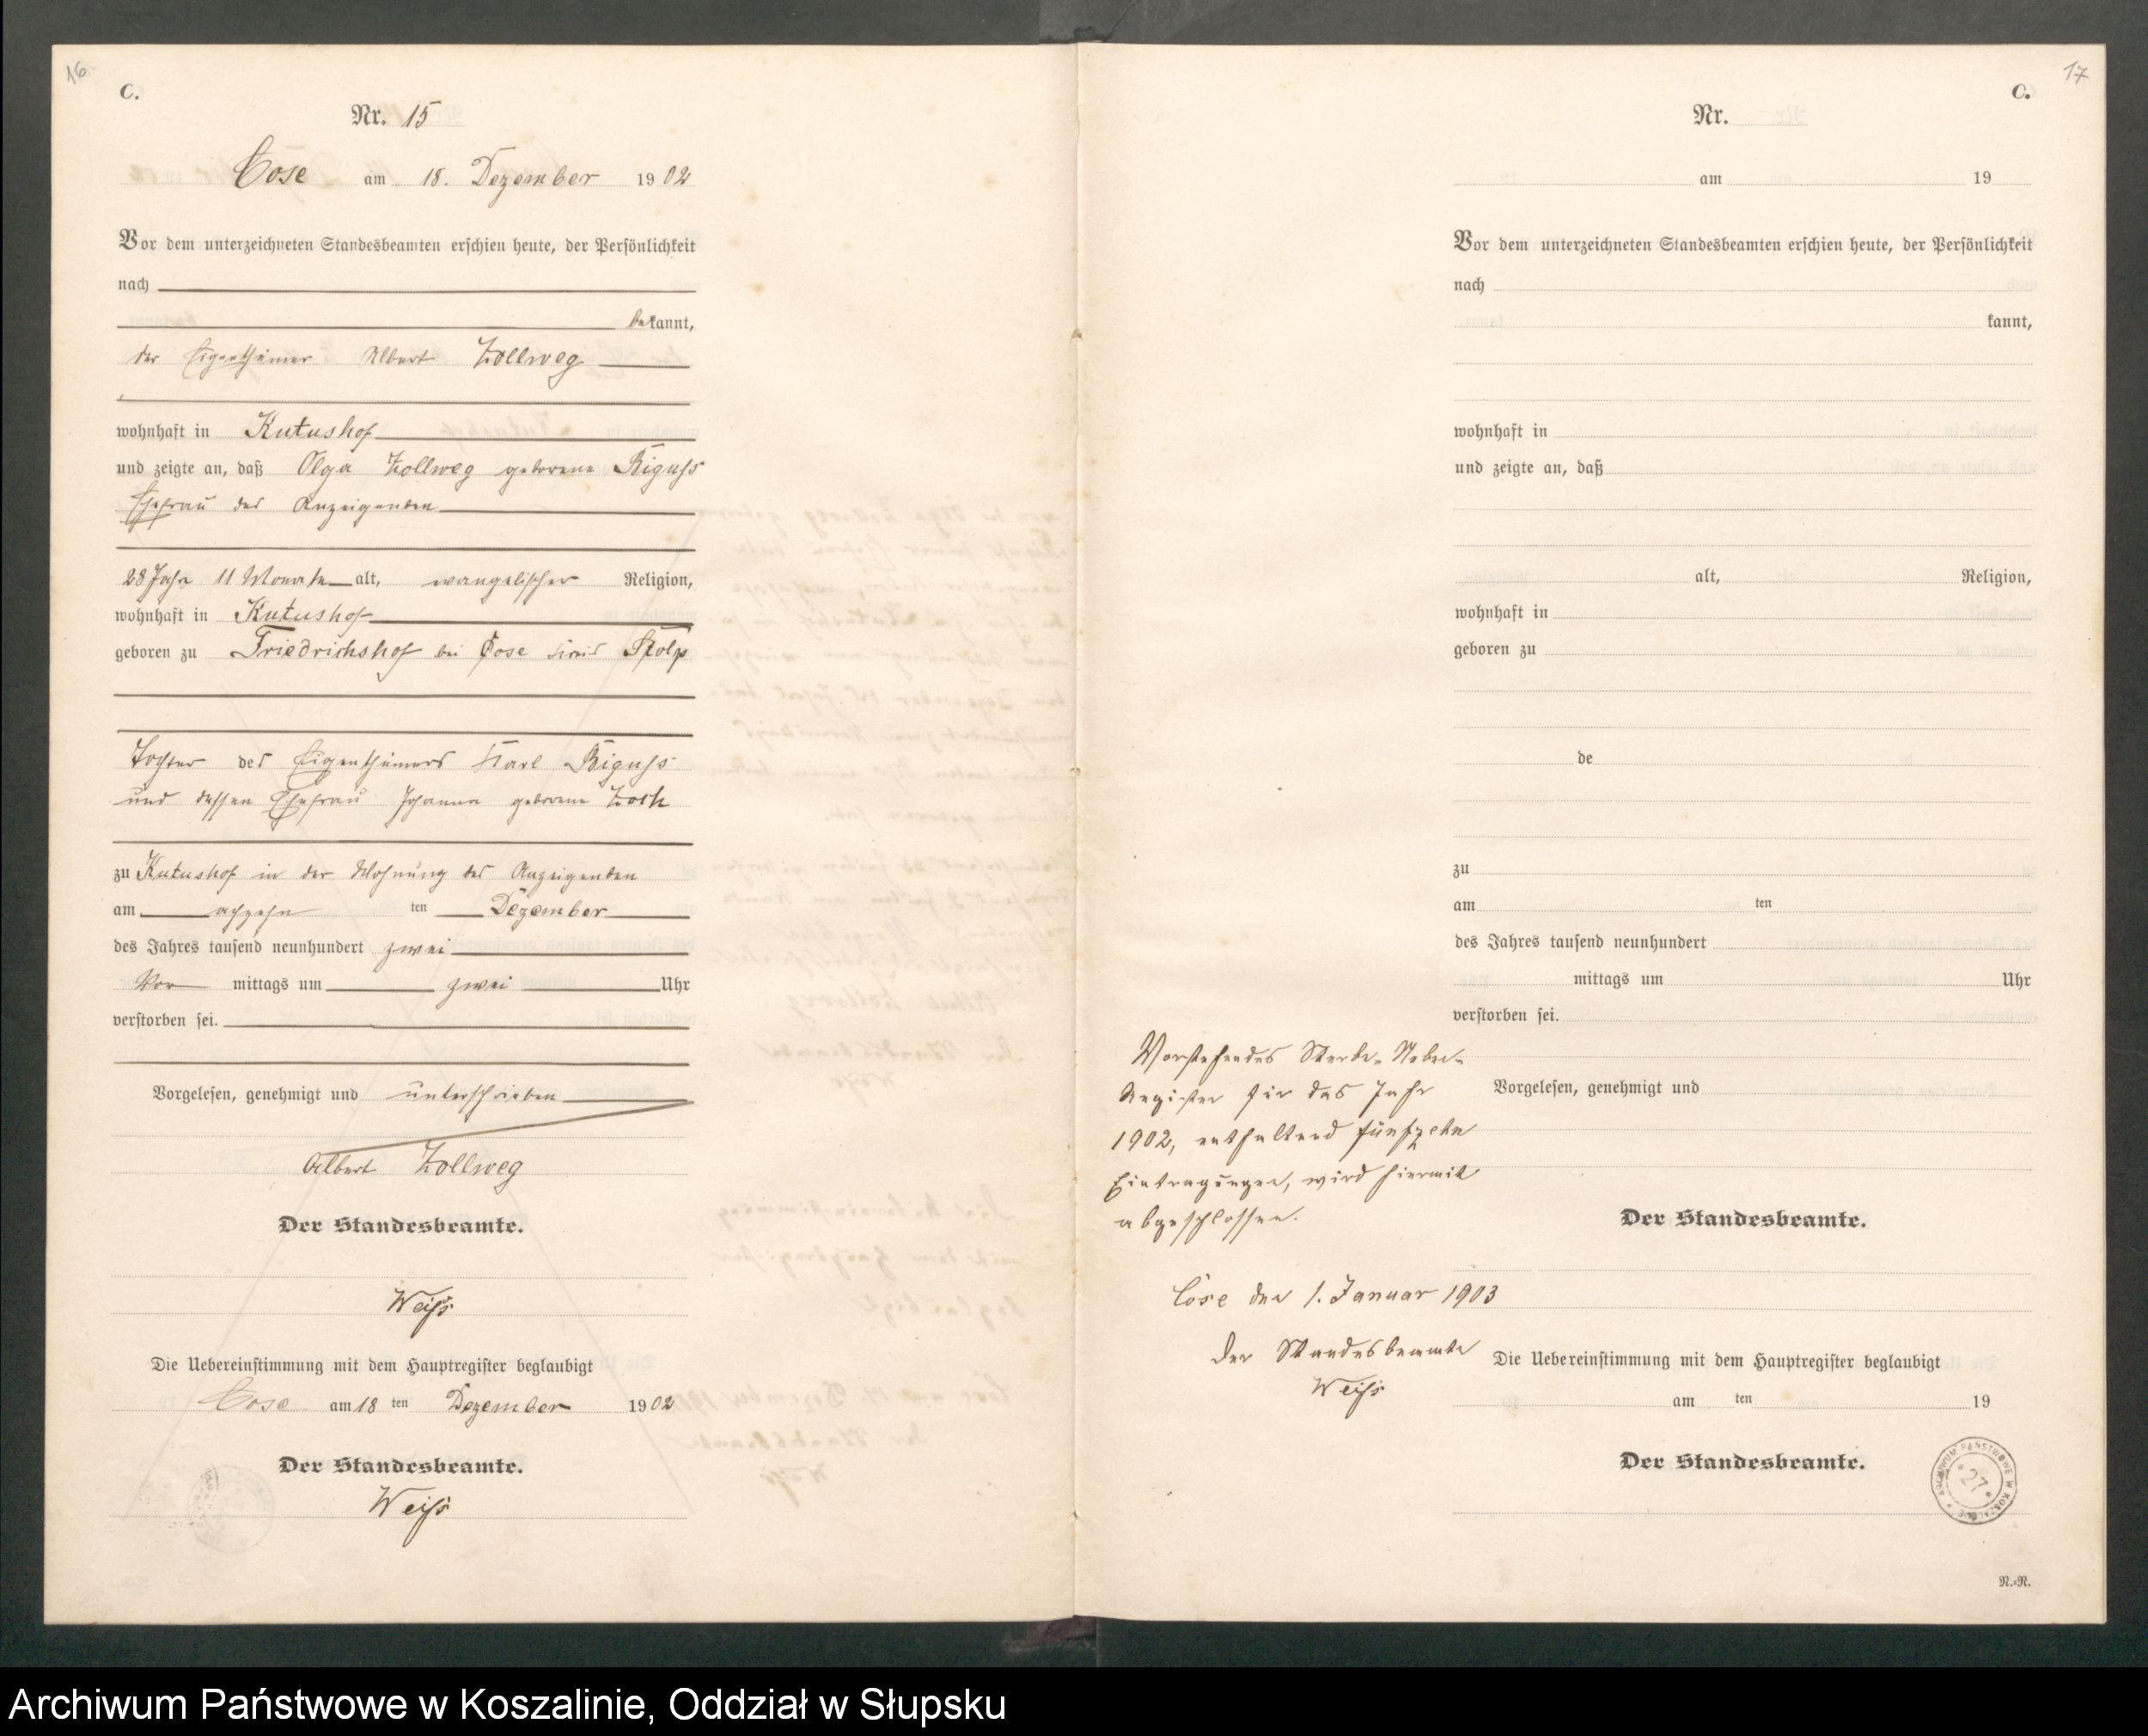 16
C.
Nr. 15
Cose am 18. Dezember 1902
Vor dem unterzeichneten Standesbeamten erschien heute, der Persönlichkeit
nach
bekannt,
der Eigenthümer Albert Zollweg
wohnhaft in Kutushof
und zeigte an, daß Olga Zollweg geborene
Ehefrau des Anzeigenden
28 Jahre 11 Monate alt, evangelischer Religion,
wohnhaft in Kutushof
geboren zu Friedrichshof bei Cose Kreis Stolp
Tochter des Eigenthümers Karl
und dessen Ehefrau Johanna geborene
zu Kutushof in der Wohnung des Anzeigenden
am achzehn ten Dezember
des Jahres tausend neunhundert zwei
Vor mittags um zwei Uhr
verstorben sei.
Vorgelesen, genehmigt und unterschrieben
Albert Zollweg
Der Standesbeamte.
Weiß
Die Uebereinstimmung mit dem Hauptregister beglaubigt
Cose am 18 ten Dezember 1902
Der Standesbeamte.
Weiß
17
C.
Nr.
am 19
Vor dem unterzeichneten Standesbeamten erschien heute, der Persönlichkeit
nach
kannt,
wohnhaft in
und zeigte an, daß
alt, Religion,
wohnhaft in
geboren zu
de
zu
am ten
des Jahres tausend neunhundert
mittags um Uhr
verstorben sei.
Vorstehendes Sterbe-Neben-
Register für das Jahr
1902, enthaltend fünfzehn
Eintragungen, wird hiermit
abgeschlossen.
Cose den 1. Januar 1903
Der Standesbeamte
Weiß
Vorgelesen, genehmigt und
Der Standesbeamte.
Die Uebereinstimmung mit dem Hauptregister beglaubigt
am ten 19
Der Standesbeamte.
ARCHIWUM PAŃSTWOWE W KOSZALINIE
27
N.-R.
Archiwum Państwowe w Koszalinie, Oddział w Słupsku